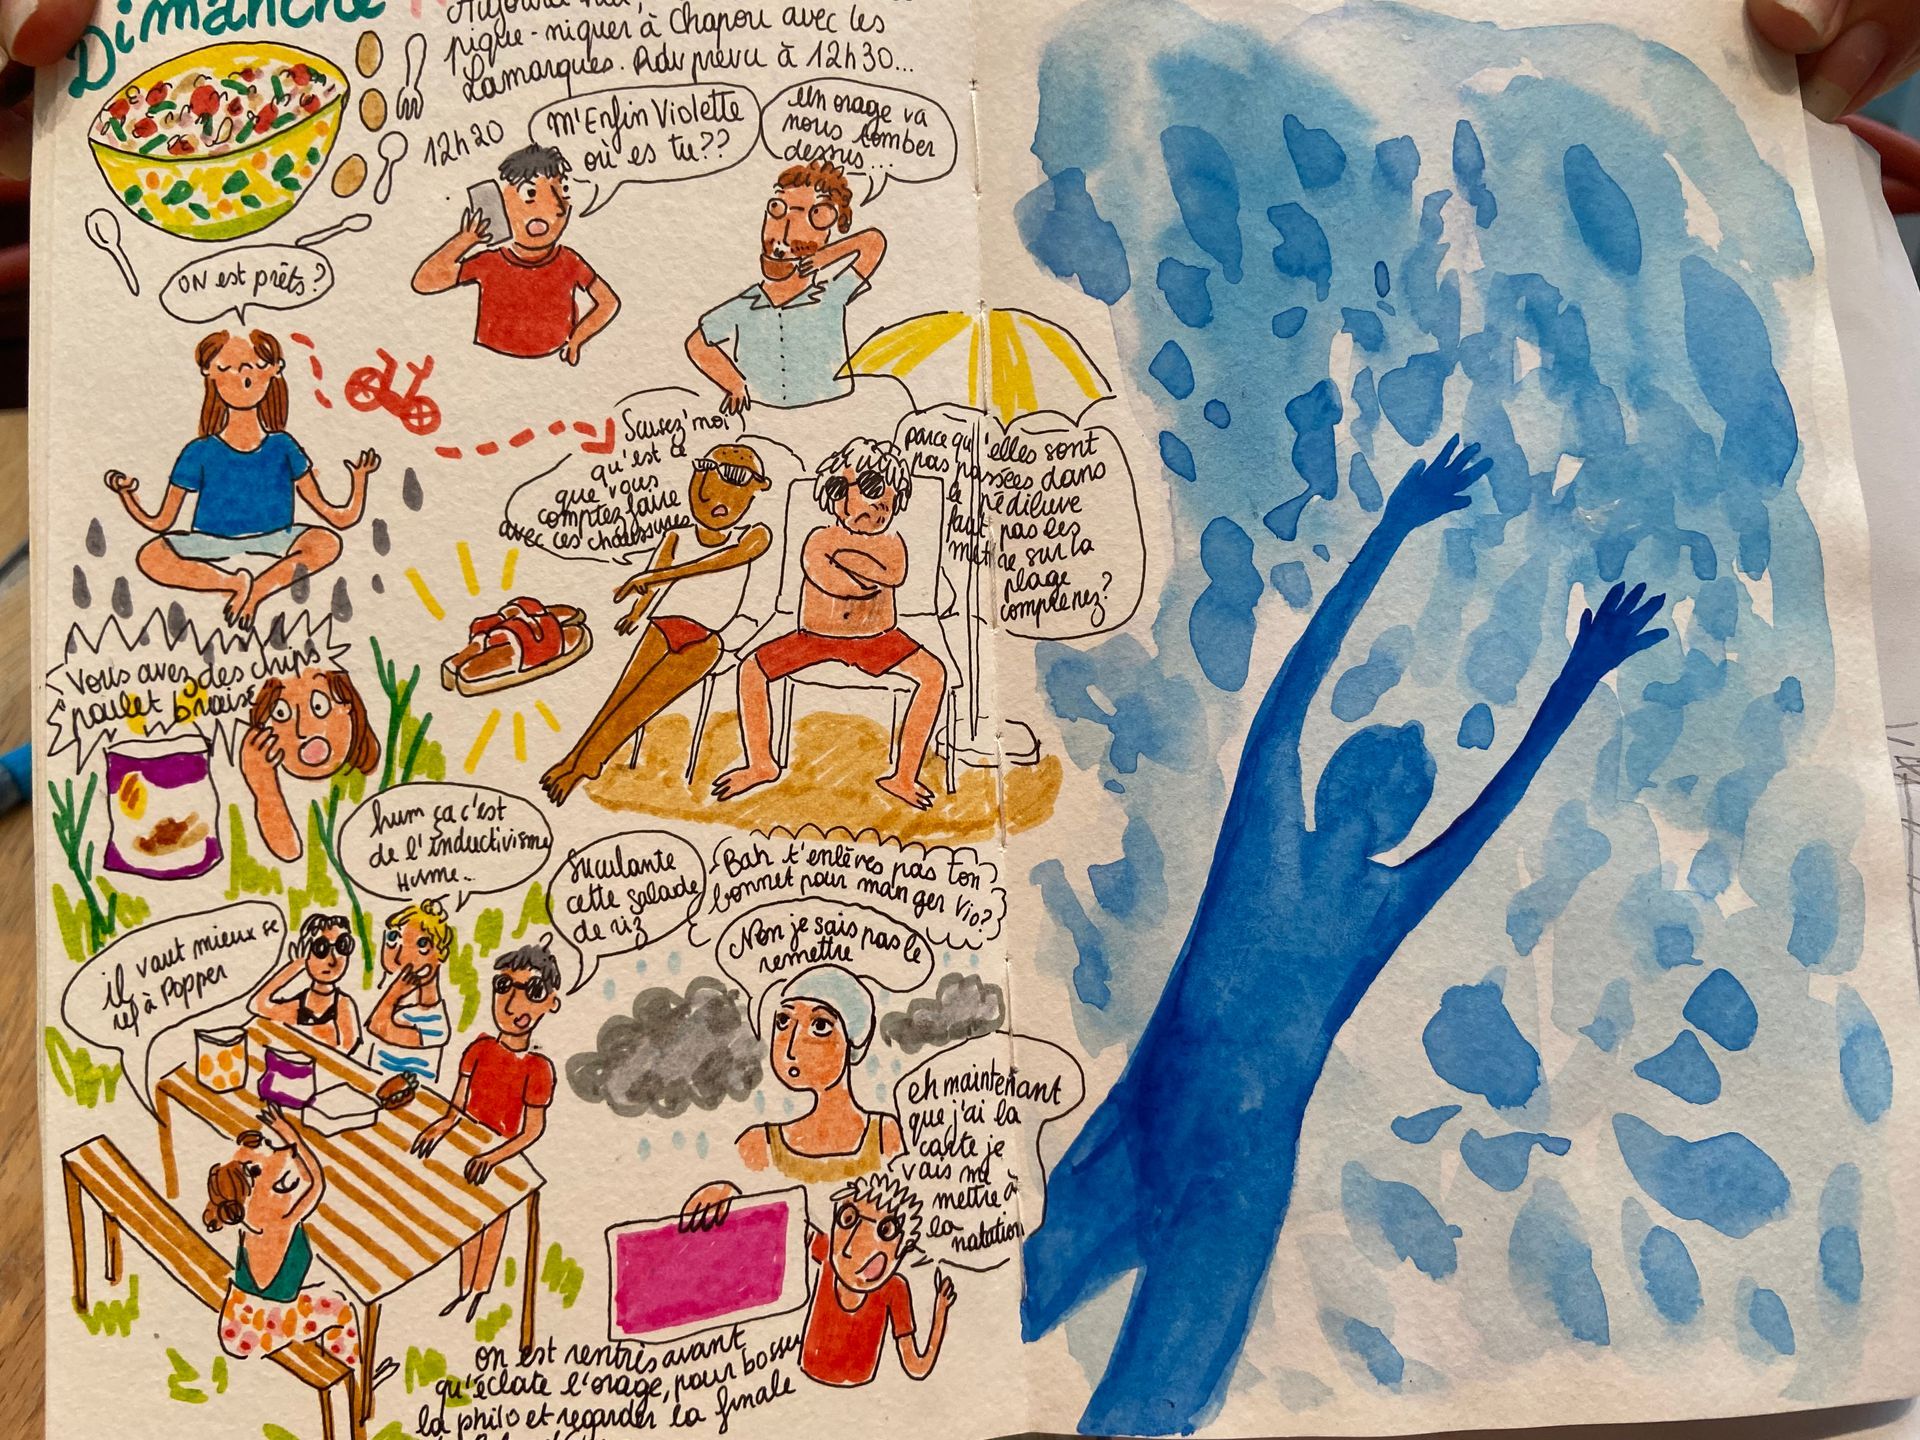 Dimanche
Aujourd'hui,
pique-niquer à Chapou avec les
Lamarques. Rdv prévu à 12h30...
12h20
M'Enfin Violette
où es tu??
Un orage va
nous tomber
dessus...
ON est prêts?
Scusez'moi
qu'est ce
que vous
comptez faire
avec ces chaussures
parce qu'elles sont
pas passées dans
le pédiluve
faut pas les
mettre sur la
plage
comprenez?
Vous avez des chips
poulet braisé
hum ça c'est
de l'inductivisme
Hume..
Suculante
cette salade
de riz
Bah t'enlèves pas ton
bonnet pour manger Vio?
Non je sais pas le
remettre
il vaut mieux se
réf à Popper
eh maintenant
que j'ai la
carte je
vais me
mettre à
la
natation
on est rentrés avant
qu'éclate l'orage, pour bosser
la philo et regarder la finale